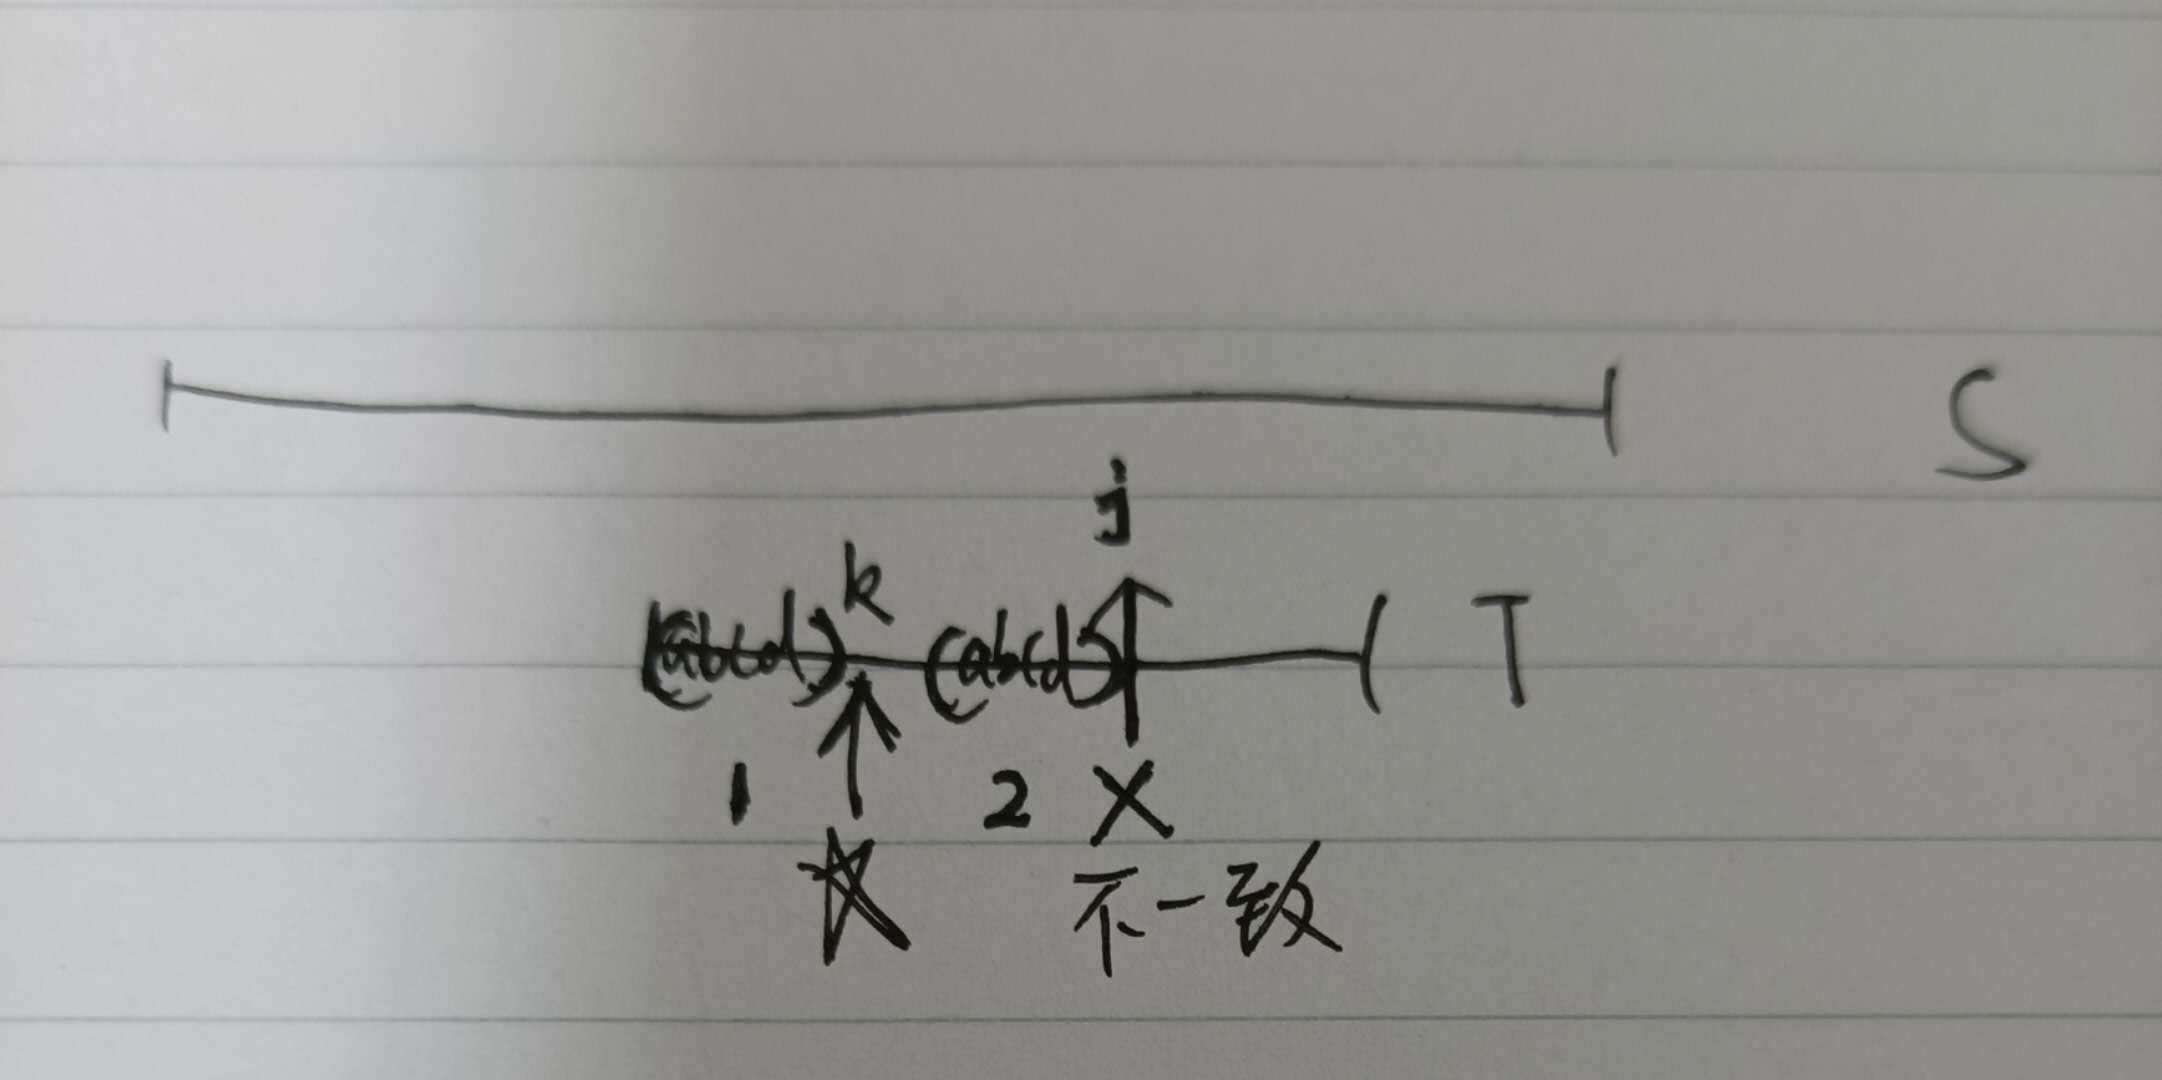 S
j
k
(abcd) (abcd) T
1 2 X
不一致